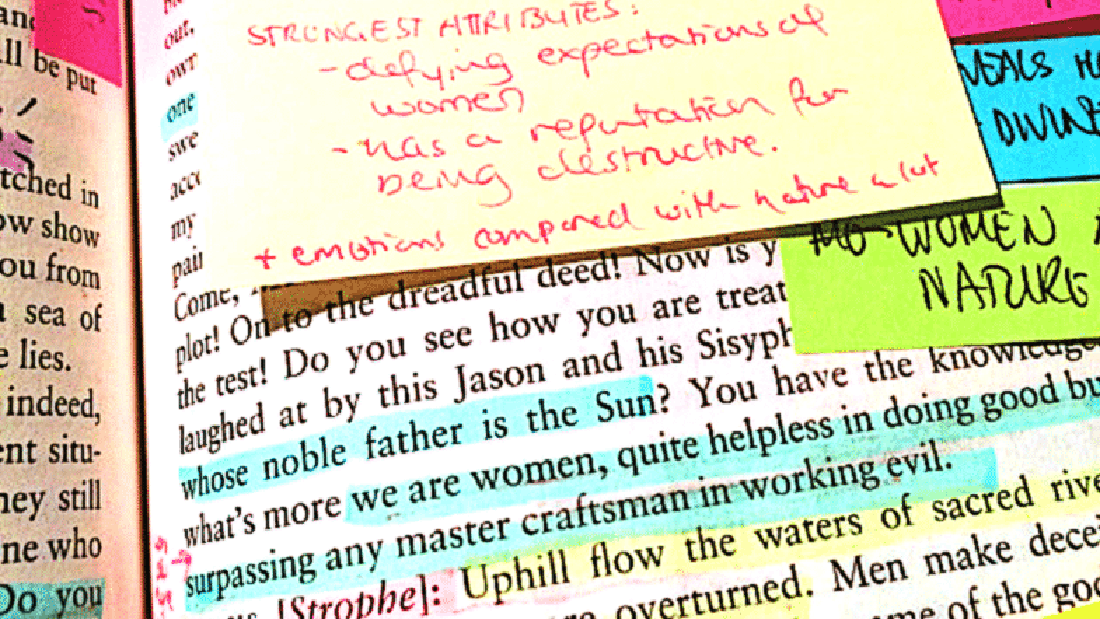 and
ll be put
tched in
ow show
ou from
sea of
e lies.
indeed,
ent situ-
hey still
ne who
Do you
out,
own
one
swe
my
STRONGEST ATTRIBUTES:
-defying expectations of
women
-has a reputation for
being destructive.
+ emotions compared with nature a lot
VEALS
DIVINE
WOMEN
NATURE
Come,
plot! On to the dreadful deed! Now is y
the test! Do you see how you are treat
laughed at by this Jason and his Sisyph
whose noble father is the Sun? You have the knowledge
what's more we are women, quite helpless in doing good bu
surpassing any master craftsman in working evil.
[Strophe]: Uphill flow the waters of sacred rive
overturned. Men make decei
me of the goo